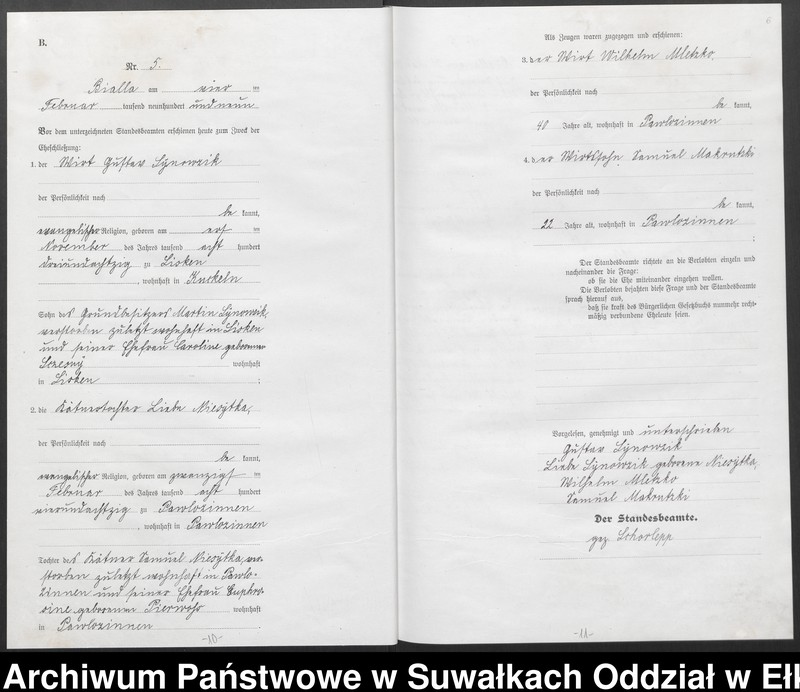 B.
Nr. 5.
Bialla am vier ten
Februar tausend neunhundert und neun
Vor dem unterzeichneten Standesbeamten erschienen heute zum Zweck der
Eheschließung:
1. der Wirt Gustav Synowzik
der Persönlichkeit nach
be kannt,
evangelischer Religion, geboren am elf ten
November des Jahres tausend acht hundert
dreiundachtzig zu Lisken
, wohnhaft in Kurkeln
Sohn des Grundbesitzers Martin Synowzik,
verstorben zuletzt wohnhaft in Lisken
und seiner Ehefrau Caroline geborenen
Sczesny wohnhaft
in Lisken ;
2. die Kätnertochter Liebe Niesytka,
der Persönlichkeit nach
be kannt,
evangelischer Religion, geboren am zwanzigs ten
Februar des Jahres tausend acht hundert
vierundachtzig zu Pawlozinnen
, wohnhaft in Pawlozinnen
Tochter des Kätner Samuel Niesytka, ver-
storben zuletzt wohnhaft in Pawlo-
zinnen und seiner Ehefrau Euphro-
sine geborenen Pierwoß wohnhaft
in Pawlozinnen .
-10-
6
Als Zeugen waren zugezogen und erschienen:
3. der Wirt Wilhelm Mletzko.
der Persönlichkeit nach
be kannt,
40 Jahre alt, wohnhaft in Pawlozinnen
4. der Wirtssohn Samuel Makrutzki
der Persönlichkeit nach
be kannt,
22 Jahre alt, wohnhaft in Pawlozinnen
;
Der Standesbeamte richtete an die Verlobten einzeln und
nacheinander die Frage:
ob sie die Ehe miteinander eingehen wollen.
Die Verlobten bejahten diese Frage und der Standesbeamte
sprach hierauf aus,
daß sie kraft des Bürgerlichen Gesetzbuchs nunmehr recht-
mäßig verbundene Eheleute seien.
Vorgelesen, genehmigt und unterschrieben
Gustav Synowzik
Liebe Synowzik geborene Niesytka,
Wilhelm Mletzko
Samuel Makrutzki
Der Standesbeamte.
gez. Schorlepp
-11-
Archiwum Państwowe w Suwałkach Oddział w Ełk